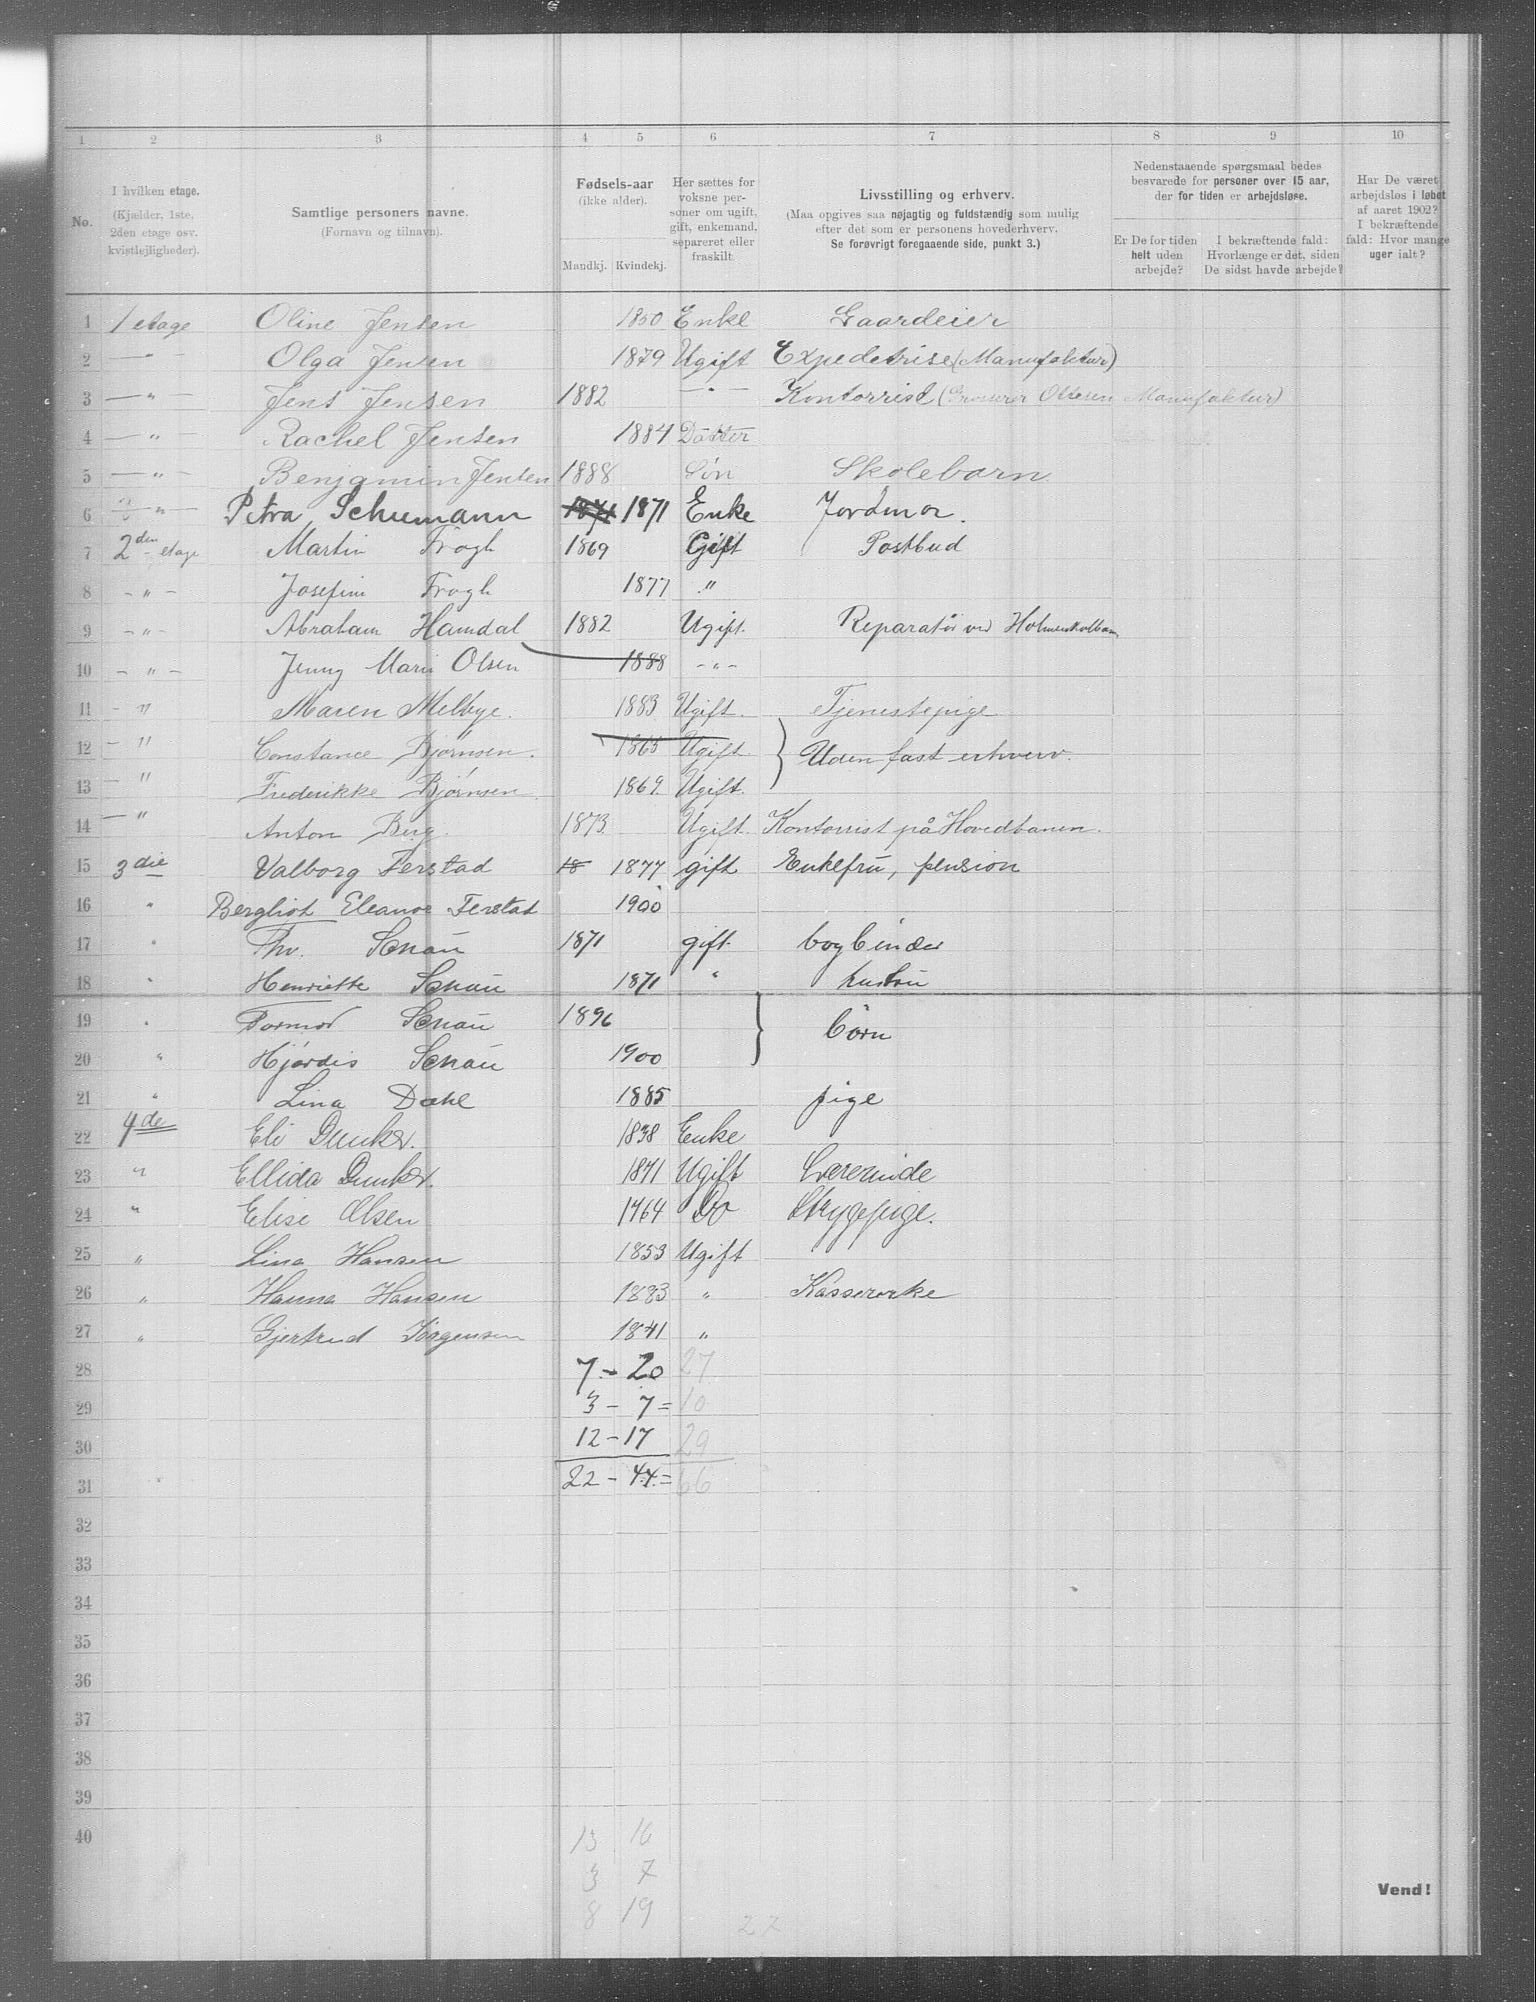 1 2 3 4 5 6 7 8 9 10
No.
I hvilken etage. (Kjælder, 1ste, 2den etage osv. kvistlejligheder).
Samtlige personers navne. (Fornavn og tilnavn).
Fødsels-aar (ikke alder). Mandkj. Kvindekj.
Her sættes for voksne personer om ugift, gift, enkemand, separeret eller fraskilt
Livsstilling og erhverv. (Maa opgives saa nøjagtig og fuldstændig som mulig efter det som er personens hovederhverv. Se forøvrigt foregaaende side, punkt 3.)
Nedenstaaende spørgsmaal bedes besvarede for personer over 15 aar, der for tiden er arbejdsløse.
Er De for tiden helt uden arbejde?
I bekræftende fald: Hvorlænge er det, siden De sidst havde arbejde?
Har De været arbejdsløs i løbet af aaret 1902? I bekræftende fald: Hvor mange uger ialt?
1 1 etage Oline Jensen 1850 Enke Gaardeier
2 — " — Olga Jensen 1879 Ugift Expeditrise (Manufaktur)
3 — " — Jens Jensen 1882 — " — Kontorrist (Grosserer Ottesen Manufaktur)
4 — " — Rachel Jensen 1884 Datter
5 — " — Benjamin Jensen 1888 Søn Skolebarn
6 — " — Petra Schumann 1871 1871 Enke Jordmor.
7 2den etage Martin Frogh 1869 Gift Postbud
8 — " — Josefine Frogh 1877 "
9 — " — Abraham Hamdal 1882 Ugift. Reparatør ved Holmenkolban
10 — " — Jenny Marie Olsen 1888 — " —
11 — " Maren Melbye. 1883 Ugift. Tjenestepige
12 — " Constance Bjørnsen. 1865 Ugift. Uden fast erhverv.
13 — " Frederikke Bjørnsen 1869. Ugift.
14 — " Anton Berg. 1873. Ugift. Kontorrist på Hovedbanen.
15 3die Valborg Ferstad 18 1877 gift Enkefru, pension
16 " Bergliot Eleanor Ferstad 1900
17 " Thv. Schau 1871 gift. bogbinder
18 " Henriette Schau 1871 " hustru
19 " Tormod Schau 1896 børn
20 " Hjørdis Schau 1900
21 " Lina Dahl 1885 pige
22 4de Eli Dunker. 1838 Enke
23 " Ellida Dunker. 1871 Ugift Lærerinde
24 " Elise Olsen 1864 Do Strygepige.
25 " Lina Hansen 1853 Ugift
26 " Hanna Hansen 1883 " Kassererske
27 " Gjertrud Jørgensen 1841 "
28 7 - 20 27
29 3 - 7 = 10
30 12 - 17 29
31 22 - 44 = 66
32
33
34
35
36
37
38
39
40
13 16
3 7
8 19
27
Vend!